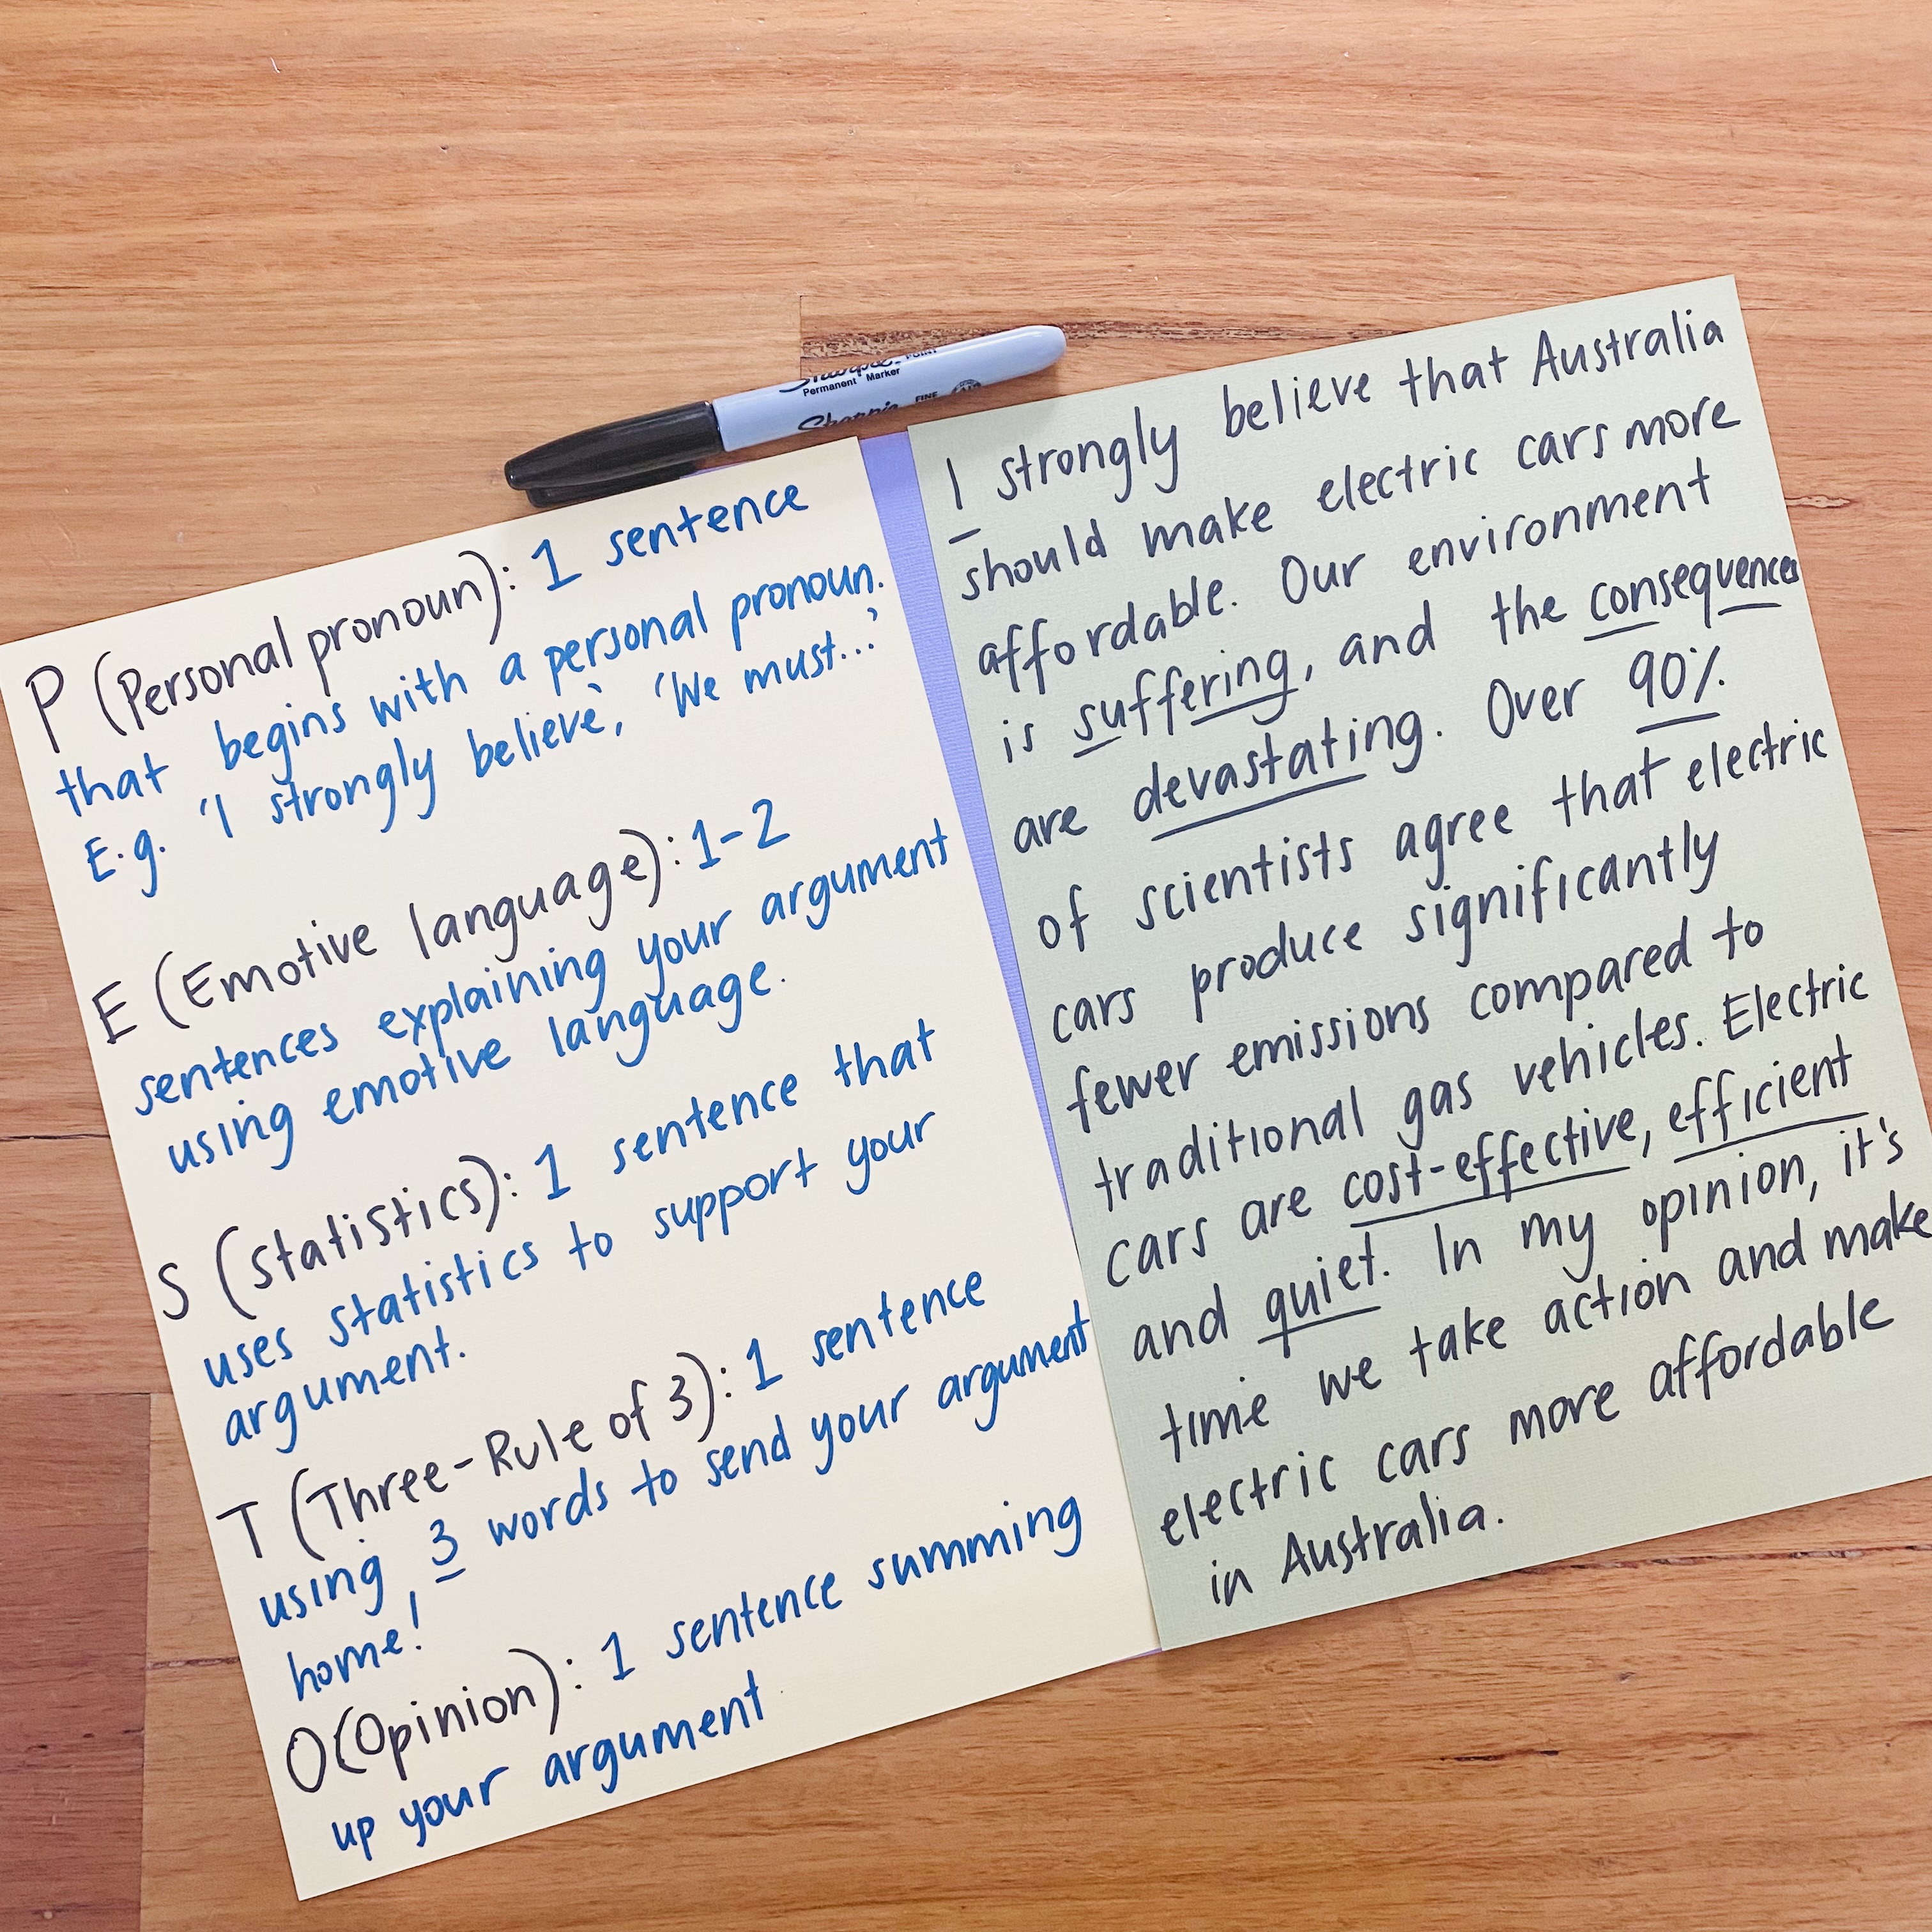 Sharpie
Permanent Marker
Sharpie FINE
POINT
P (Personal pronoun): 1 sentence
that begins with a personal pronoun.
E.g. 'I strongly believe', 'We must...'
E (Emotive language): 1-2
sentences explaining your argument
using emotive language.
S (Statistics): 1 sentence that
uses statistics to support your
argument.
T (Three-Rule of 3): 1 sentence
using 3 words to send your argument
home!
O(Opinion): 1 sentence summing
up your argument
I strongly believe that Australia
should make electric cars more
affordable. Our environment
is suffering, and the consequences
are devastating. Over 90%
of scientists agree that electric
cars produce significantly
fewer emissions compared to
traditional gas vehicles. Electric
cars are cost-effective, efficient
and quiet. In my opinion, it's
time we take action and make
electric cars more affordable
in Australia.